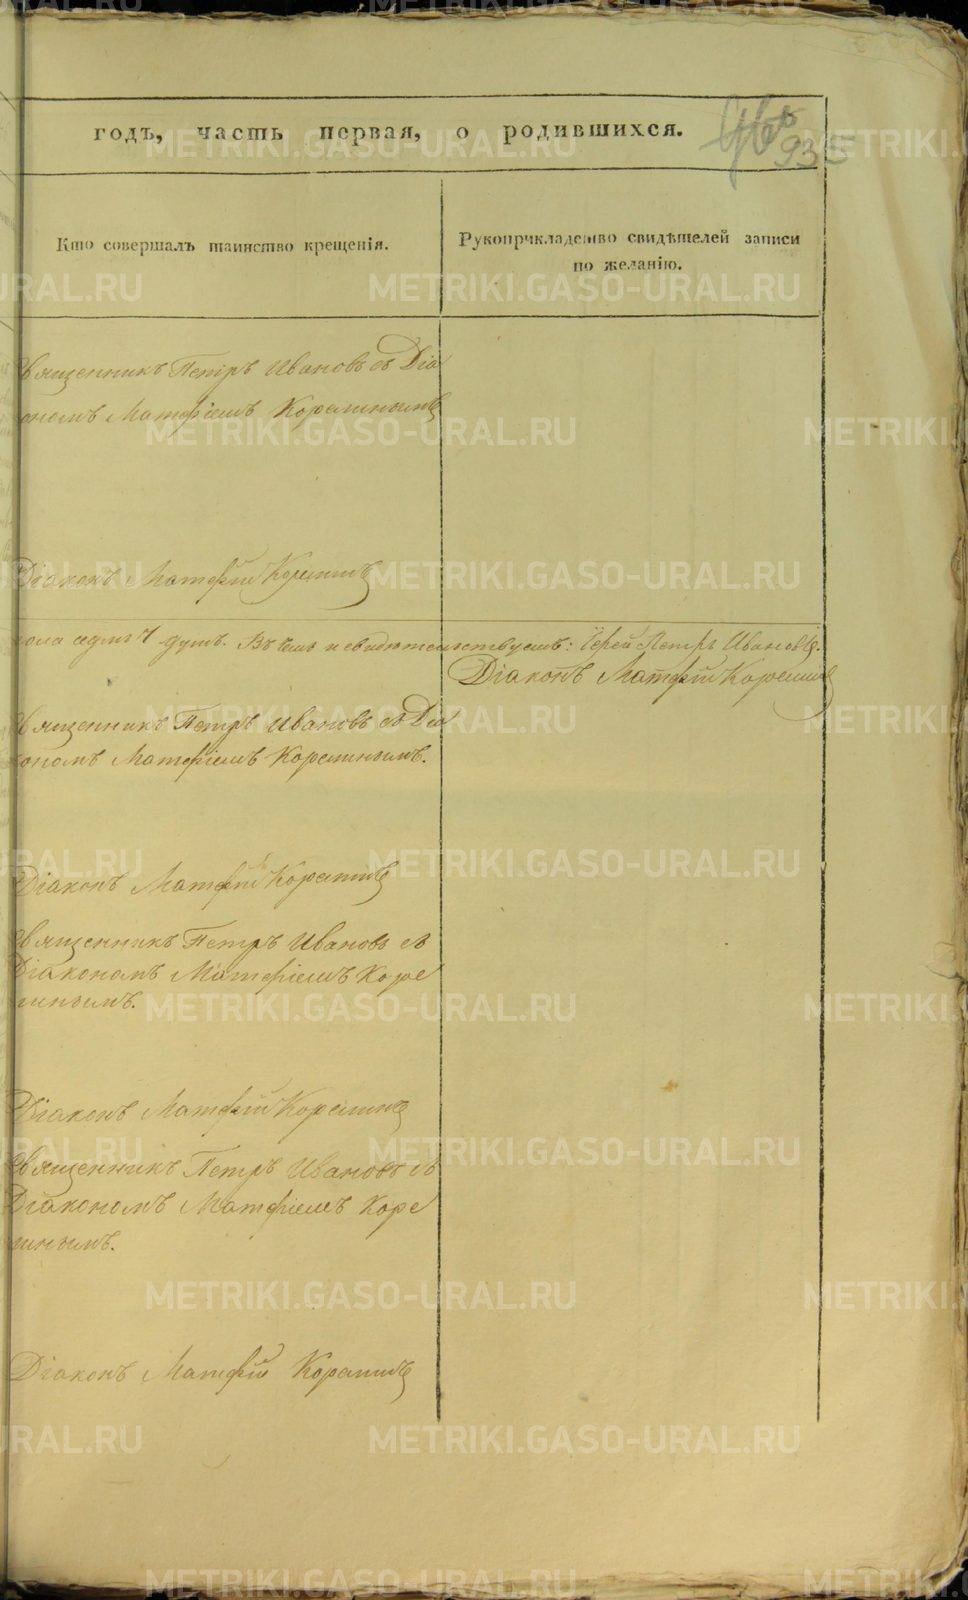 годъ, часть первая, о родившихся.
935
Кто совершалъ таинство крещенія.
Рукоприкладство свидѣтелей записи
по желанію.
Священникъ Петръ Ивановъ съ Діа
кономъ Матфіемъ Корелинымъ
Діаконъ Матфій Корелинъ
пола седмь 7 душъ. Въ чемъ и свидѣтельствуемъ: Іерей Петръ Ивановъ.
Діаконъ Матфій Корелинъ
Священникъ Петръ Ивановъ съ Діа
кономъ Матфіемъ Корелинымъ.
Діаконъ Матфій Корелинъ
Священникъ Петръ Ивановъ съ
Діакономъ Матфіемъ Коре
линымъ.
Діаконъ Матфій Корелинъ
Священникъ Петръ Ивановъ съ
Діакономъ Матфіемъ Коре
линымъ.
Діаконъ Матфій Корелинъ
METRIKI.GASO-URAL.RU